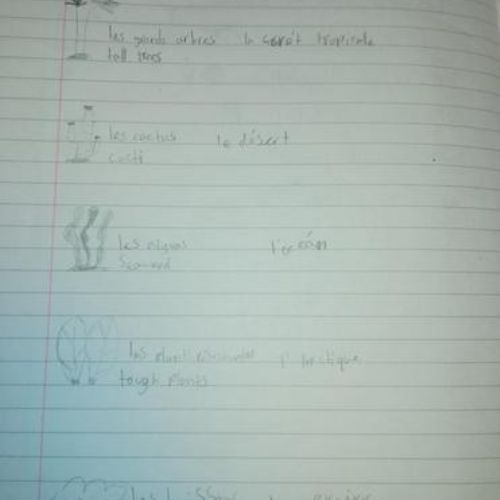 les grands arbres la forêt tropicale
tall trees
les cactus le désert
cacti
les algues l'océan
Seaweed
les plant l'arctique
tough plants
les